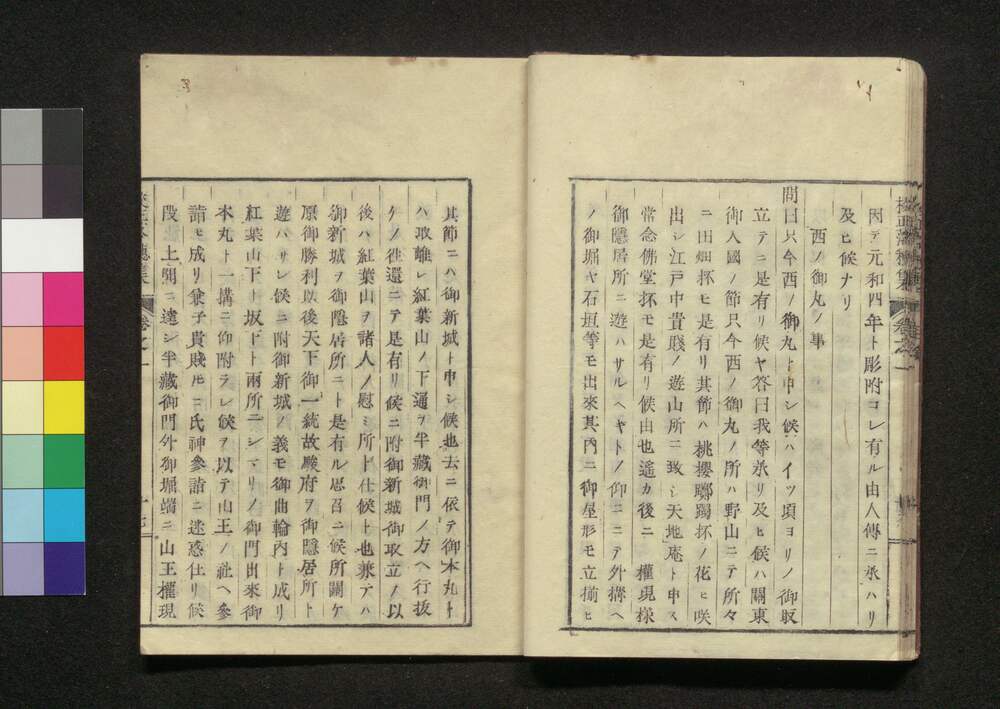 因テ元和四年ト彫附コレ有ル由人傳ニ承ハリ
及ヒ候ナリ
西ノ御丸ノ事
問曰只今西ノ御丸ト申シ候ハイツ頃ヨリノ御取
立テニ是有リ候ヤ答曰我等承リ及ヒ候ハ關東
御入國ノ節只今西ノ御丸ノ所ハ野山ニテ所々
ニ田畑抔モ是有リ其節ハ桃櫻躑躅抔ノ花ヒ咲
出シ江戸中貴賤ノ遊山所ニ致シ天地庵ト申ス
常念佛堂抔モ是有リ候由也遙カ後ニ 權現樣
御隱居所ニ遊ハサルヘキトノ仰ニテ外構ヘ
ノ御堀ヤ石垣等モ出來其内ニ御屋形モ立揃ヒ
其節ニハ御新城ト申シ候也去ニ依テ御本丸ト
ハ取離レ紅葉山ノ下通ヲ半藏御門ノ方ヘ行拔
ケノ往還ニテ是有リ候ニ附御新城御取立ノ以
後ハ紅葉山ヲ諸人ノ慰ミ所ト仕候ト也兼テハ
御新城ヲ御隱居所ニト是有ル思召ニ候所關ケ
原御勝利以後天下御一統故駿府ヲ御隱居所ト
遊ハサレ候ニ附御新城ノ義モ御曲輪内ト成リ
紅葉山下ト坂下ト兩所ニシマリノ御門出來御
本丸ト一構ニ仰附ラレ候ヲ以テ山王ノ社ヘ參
詣ヒ成リ象子貴賤ニ氏神參詣ニ迷惑仕リ候
段 上聞ニ達シ半藏御門外御堀端ニ山王權現